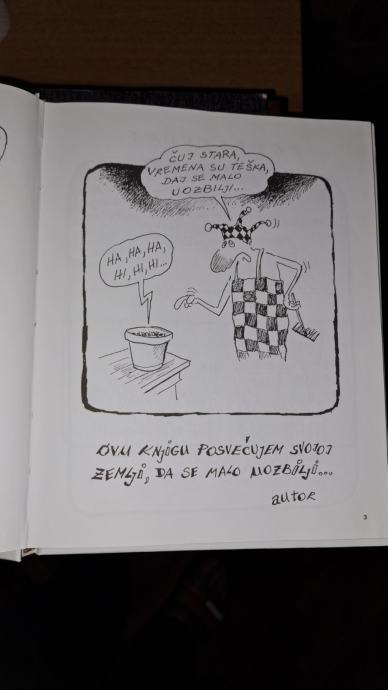 ČUJ STARA,
VREMENA SU TEŠKA,
DAJ SE MALO
UOZBILJI...
HA, HA, HA,
HI, HI, HI...
OVU KNJIGU POSVEĆUJEM SVOJOJ
ZEMLJI, DA SE MALO UOZBILJI...
autor
3